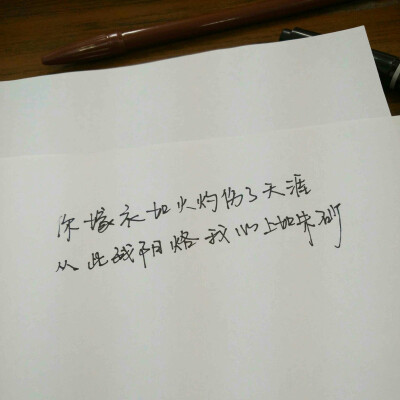 你缘衣如火灼伤了天涯
从此残阳烙我心上如朱砂